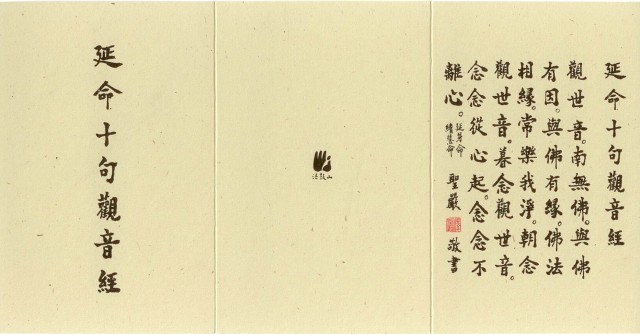 延命十句觀音經
觀世音。南無佛。與佛
有因。與佛有緣。佛法
相緣。常樂我淨。朝念
觀世音。暮念觀世音。
念念從心起。念念不
離心。
延壽命
續慧命
聖嚴
敬書
法鼓山
延命十句觀音經